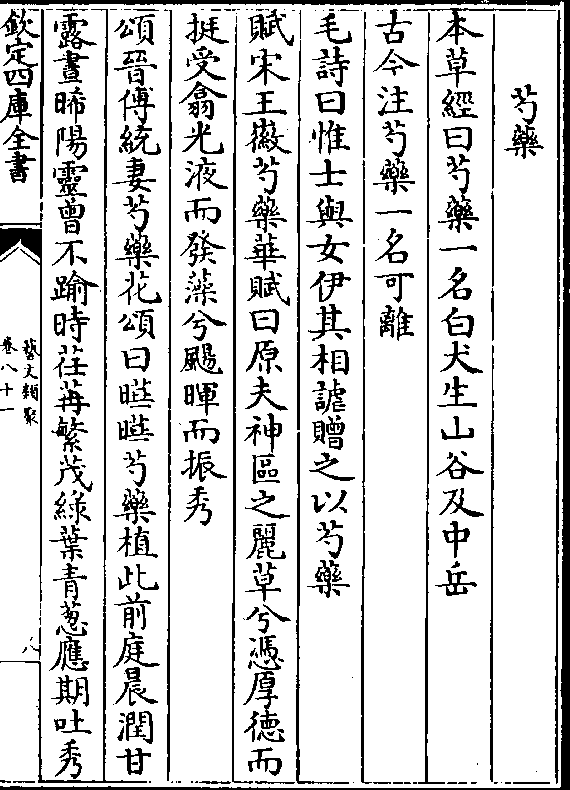 芍藥
本草經曰芍藥一名白犬生山谷及中岳
古今注芍藥一名可離
毛詩曰惟士與女伊其相謔贈之以芍藥
賦宋王徽芍藥華賦曰原夫神區之麗草兮憑厚德而
挺受翕光液而發藻兮颺暉而振秀
頌晉傅統妻芍藥花頌曰曄曄芍藥植此前庭晨潤甘
露晝晞陽靈曾不踰時荏苒繁茂綠葉青葱應期吐秀
欽定四庫全書
藝文類聚
卷八十一
八